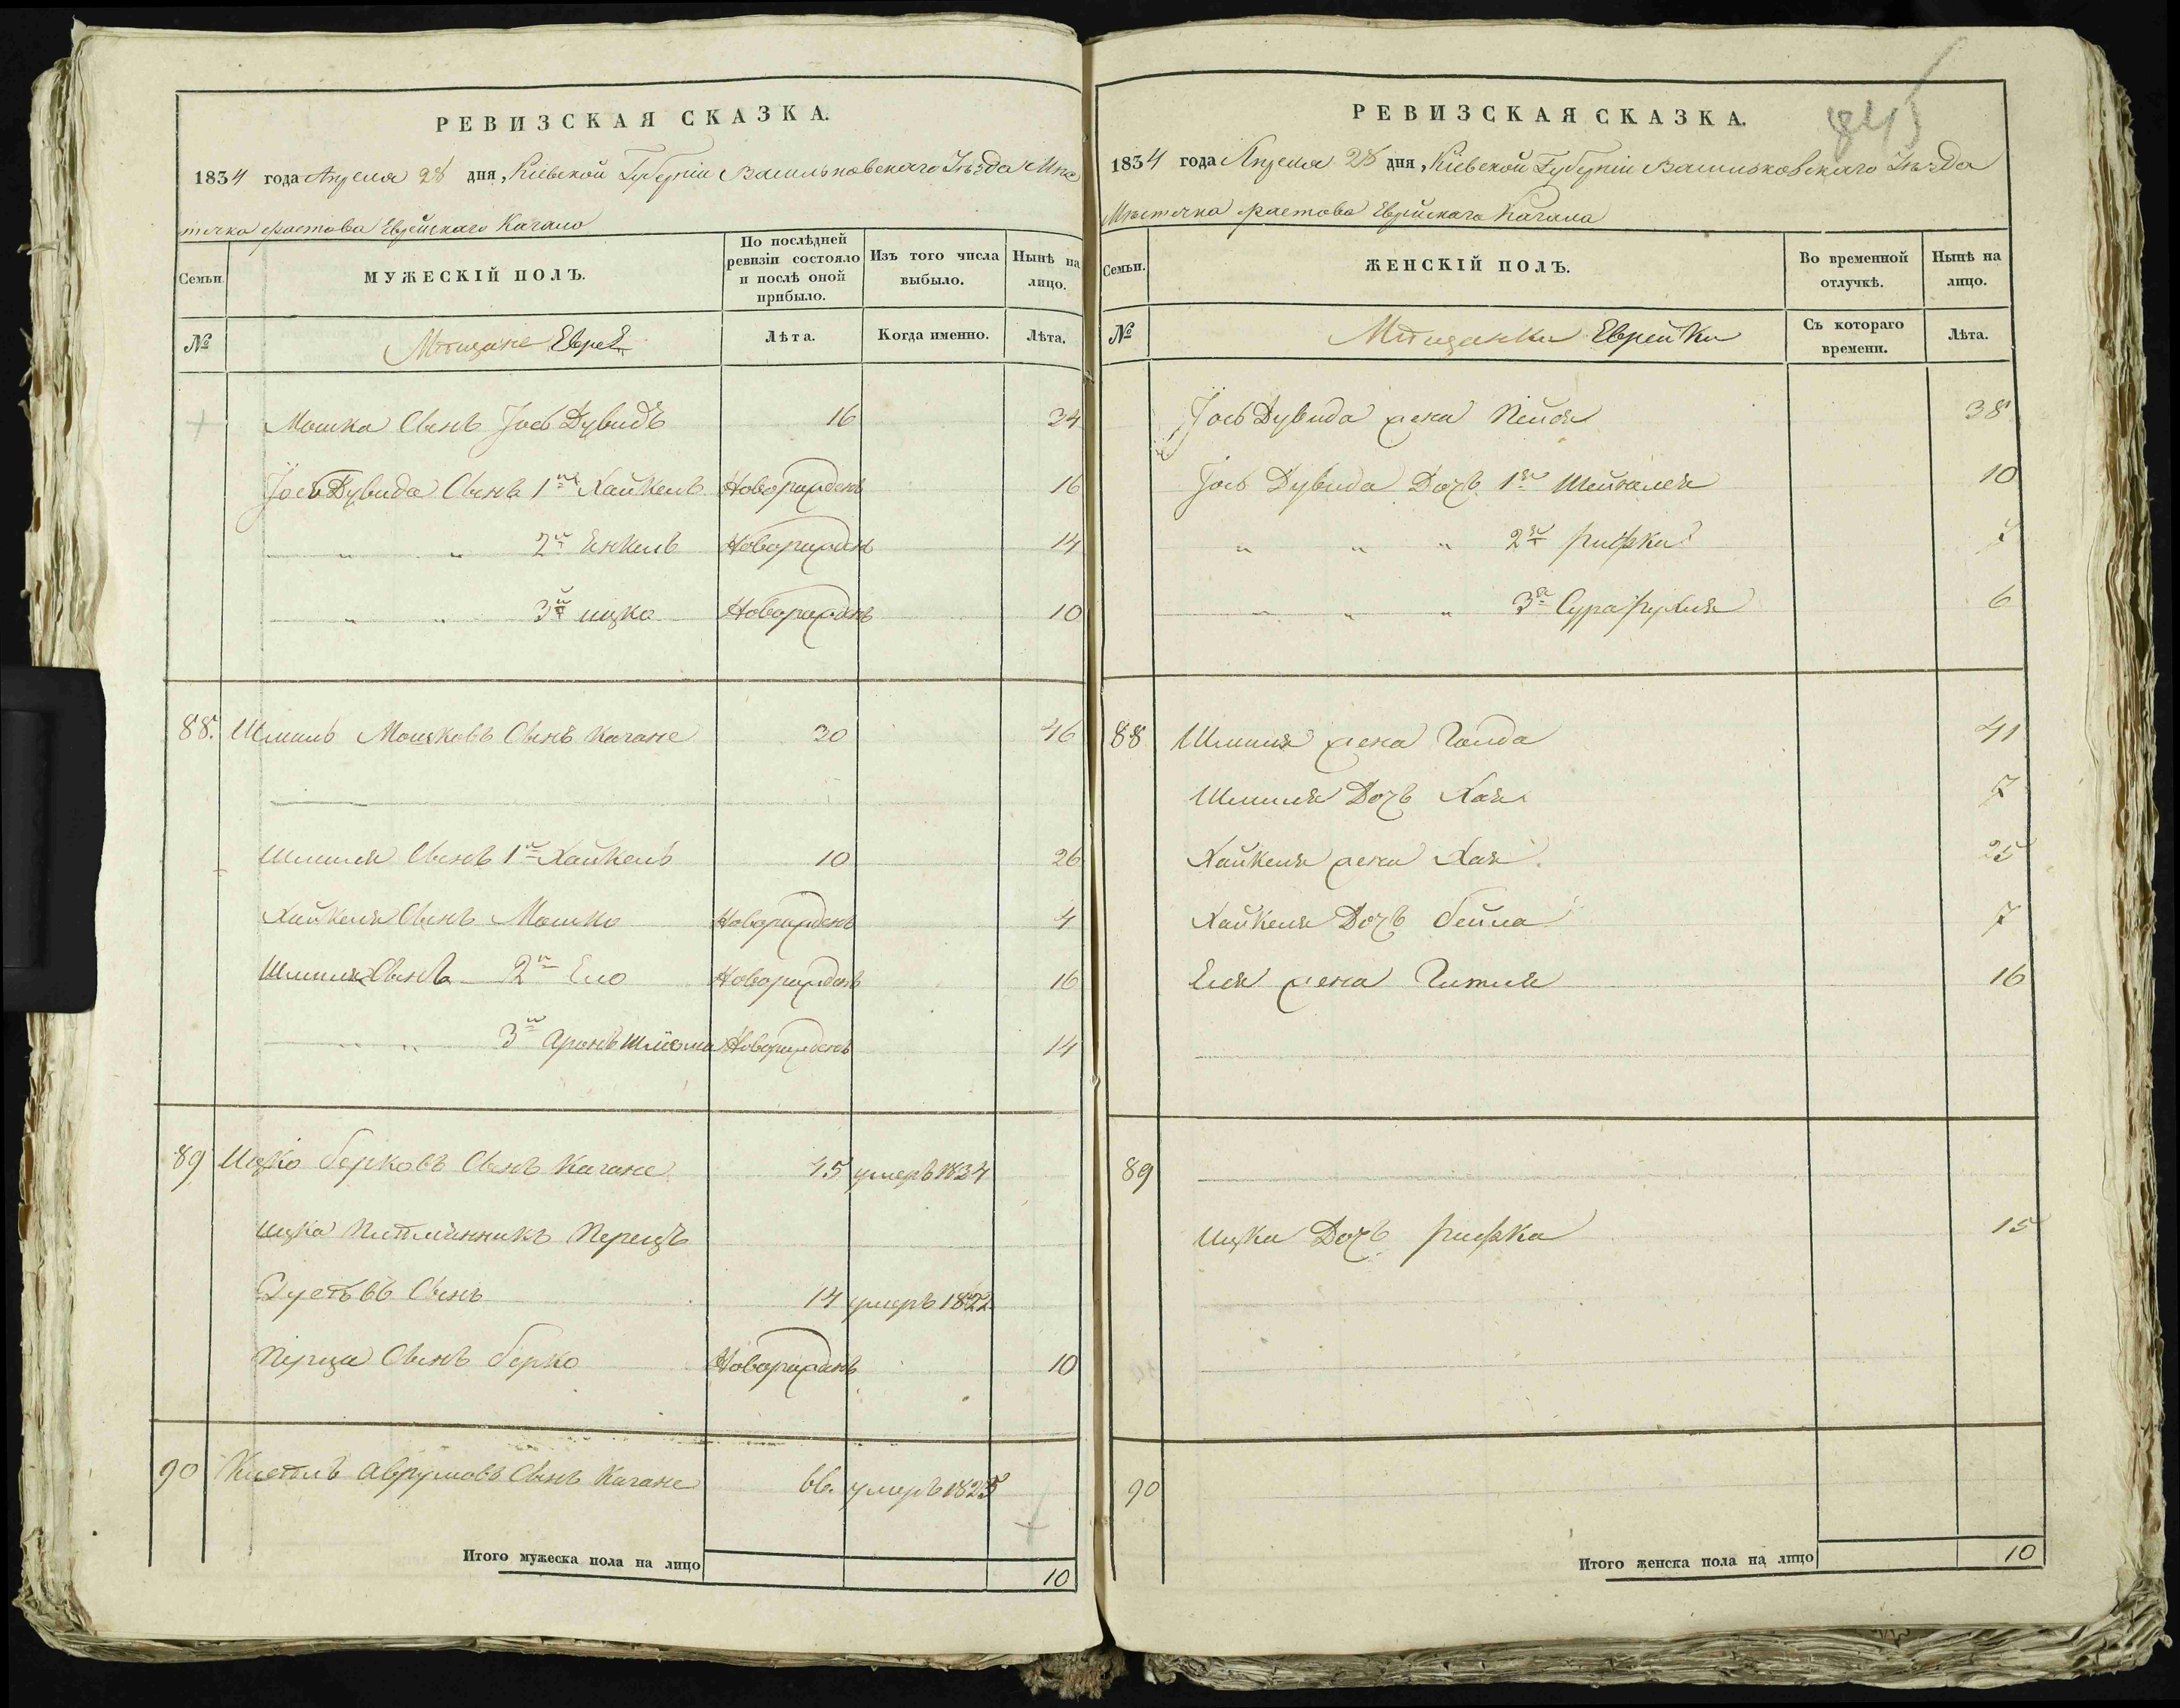 РЕВИЗСКАЯ СКАЗКА.
1834 года Апреля 28 дня, Кіевской Губерніи Васильковскаго Уѣзда Мѣс
течка Фастова Еврейскаго Кагала
Семьи. МУЖЕСКІЙ ПОЛЪ. По послѣдней ревизіи состояло и послѣ оной прибыло. Изъ того числа выбыло. Нынѣ на лицо.
№ Мѣщане Евреѣ Лѣта. Когда именно. Лѣта.
Мошка Сынъ Іось Дувидъ 16 34
Іось Дувида Сынъ 1й Хайкель Новорожденъ 16
" " 2й Енкель Новорожденъ 14
" " 3й ицко Новорожденъ 10
88. Шмиль Мошковъ Сынъ Кагане 30 46
Шмиля Сынъ 1й Хайкель 10 26
Хайкеля Сынъ Мошко Новорожденъ 4
Шмиля Сынъ 2й Ело Новорожденъ 16
" " 3й Аронъ Шліома Новорожденъ 14
89 Ицко берковъ Сынъ Кагане 45 умеръ 1834
ицка Племянникъ Перецъ
Сынъ 14 умеръ 1822
Перца Сынъ берко Новорожденъ 10
90 Аврумовъ Сынъ Кагане 66. умеръ 1825
Итого мужеска пола на лицо 10
845
РЕВИЗСКАЯ СКАЗКА.
1834 года Апреля 28 дня, Кіевской Губерніи Васильковскаго Уѣзда
Мѣстечка Фастова Еврейскаго Кагала
Семьи. ЖЕНСКІЙ ПОЛЪ. Во временной отлучкѣ. Нынѣ на лицо.
№ Мѣщанки Еврейки Съ котораго времени. Лѣта.
Іось Дувида жена Нейся 38
Іось Дувида Дочь 1я Шейвалея 10
" " " 2я рифка 7
" " " 3я Сура рухля 6
88 Шмиля жена Голда 41
Шмиля Дочь Хая 7
Хайкеля жена Хая 25
Хайкеля Дочь бейла 7
Еля жена Гитля 16
89
ицка Дочь рифка 15
90
Итого женска пола на лицо 10